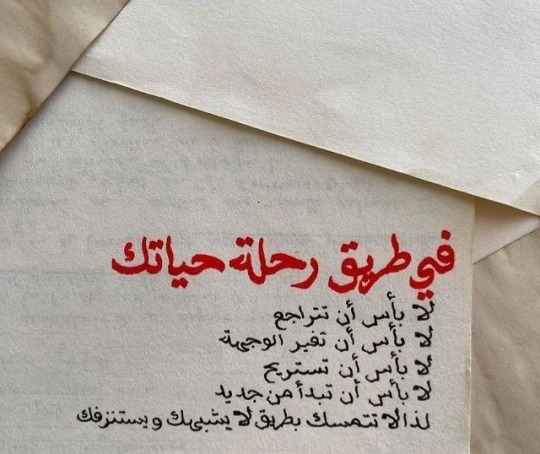 في طريق رحلة حياتك
لا بأس أن تتراجع
لا بأس أن تغير الوجهة
لا بأس أن تستريح
لا بأس أن تبدأ من جديد
لذا لا تتمسك بطريق لا يشبهك ويستنزفك